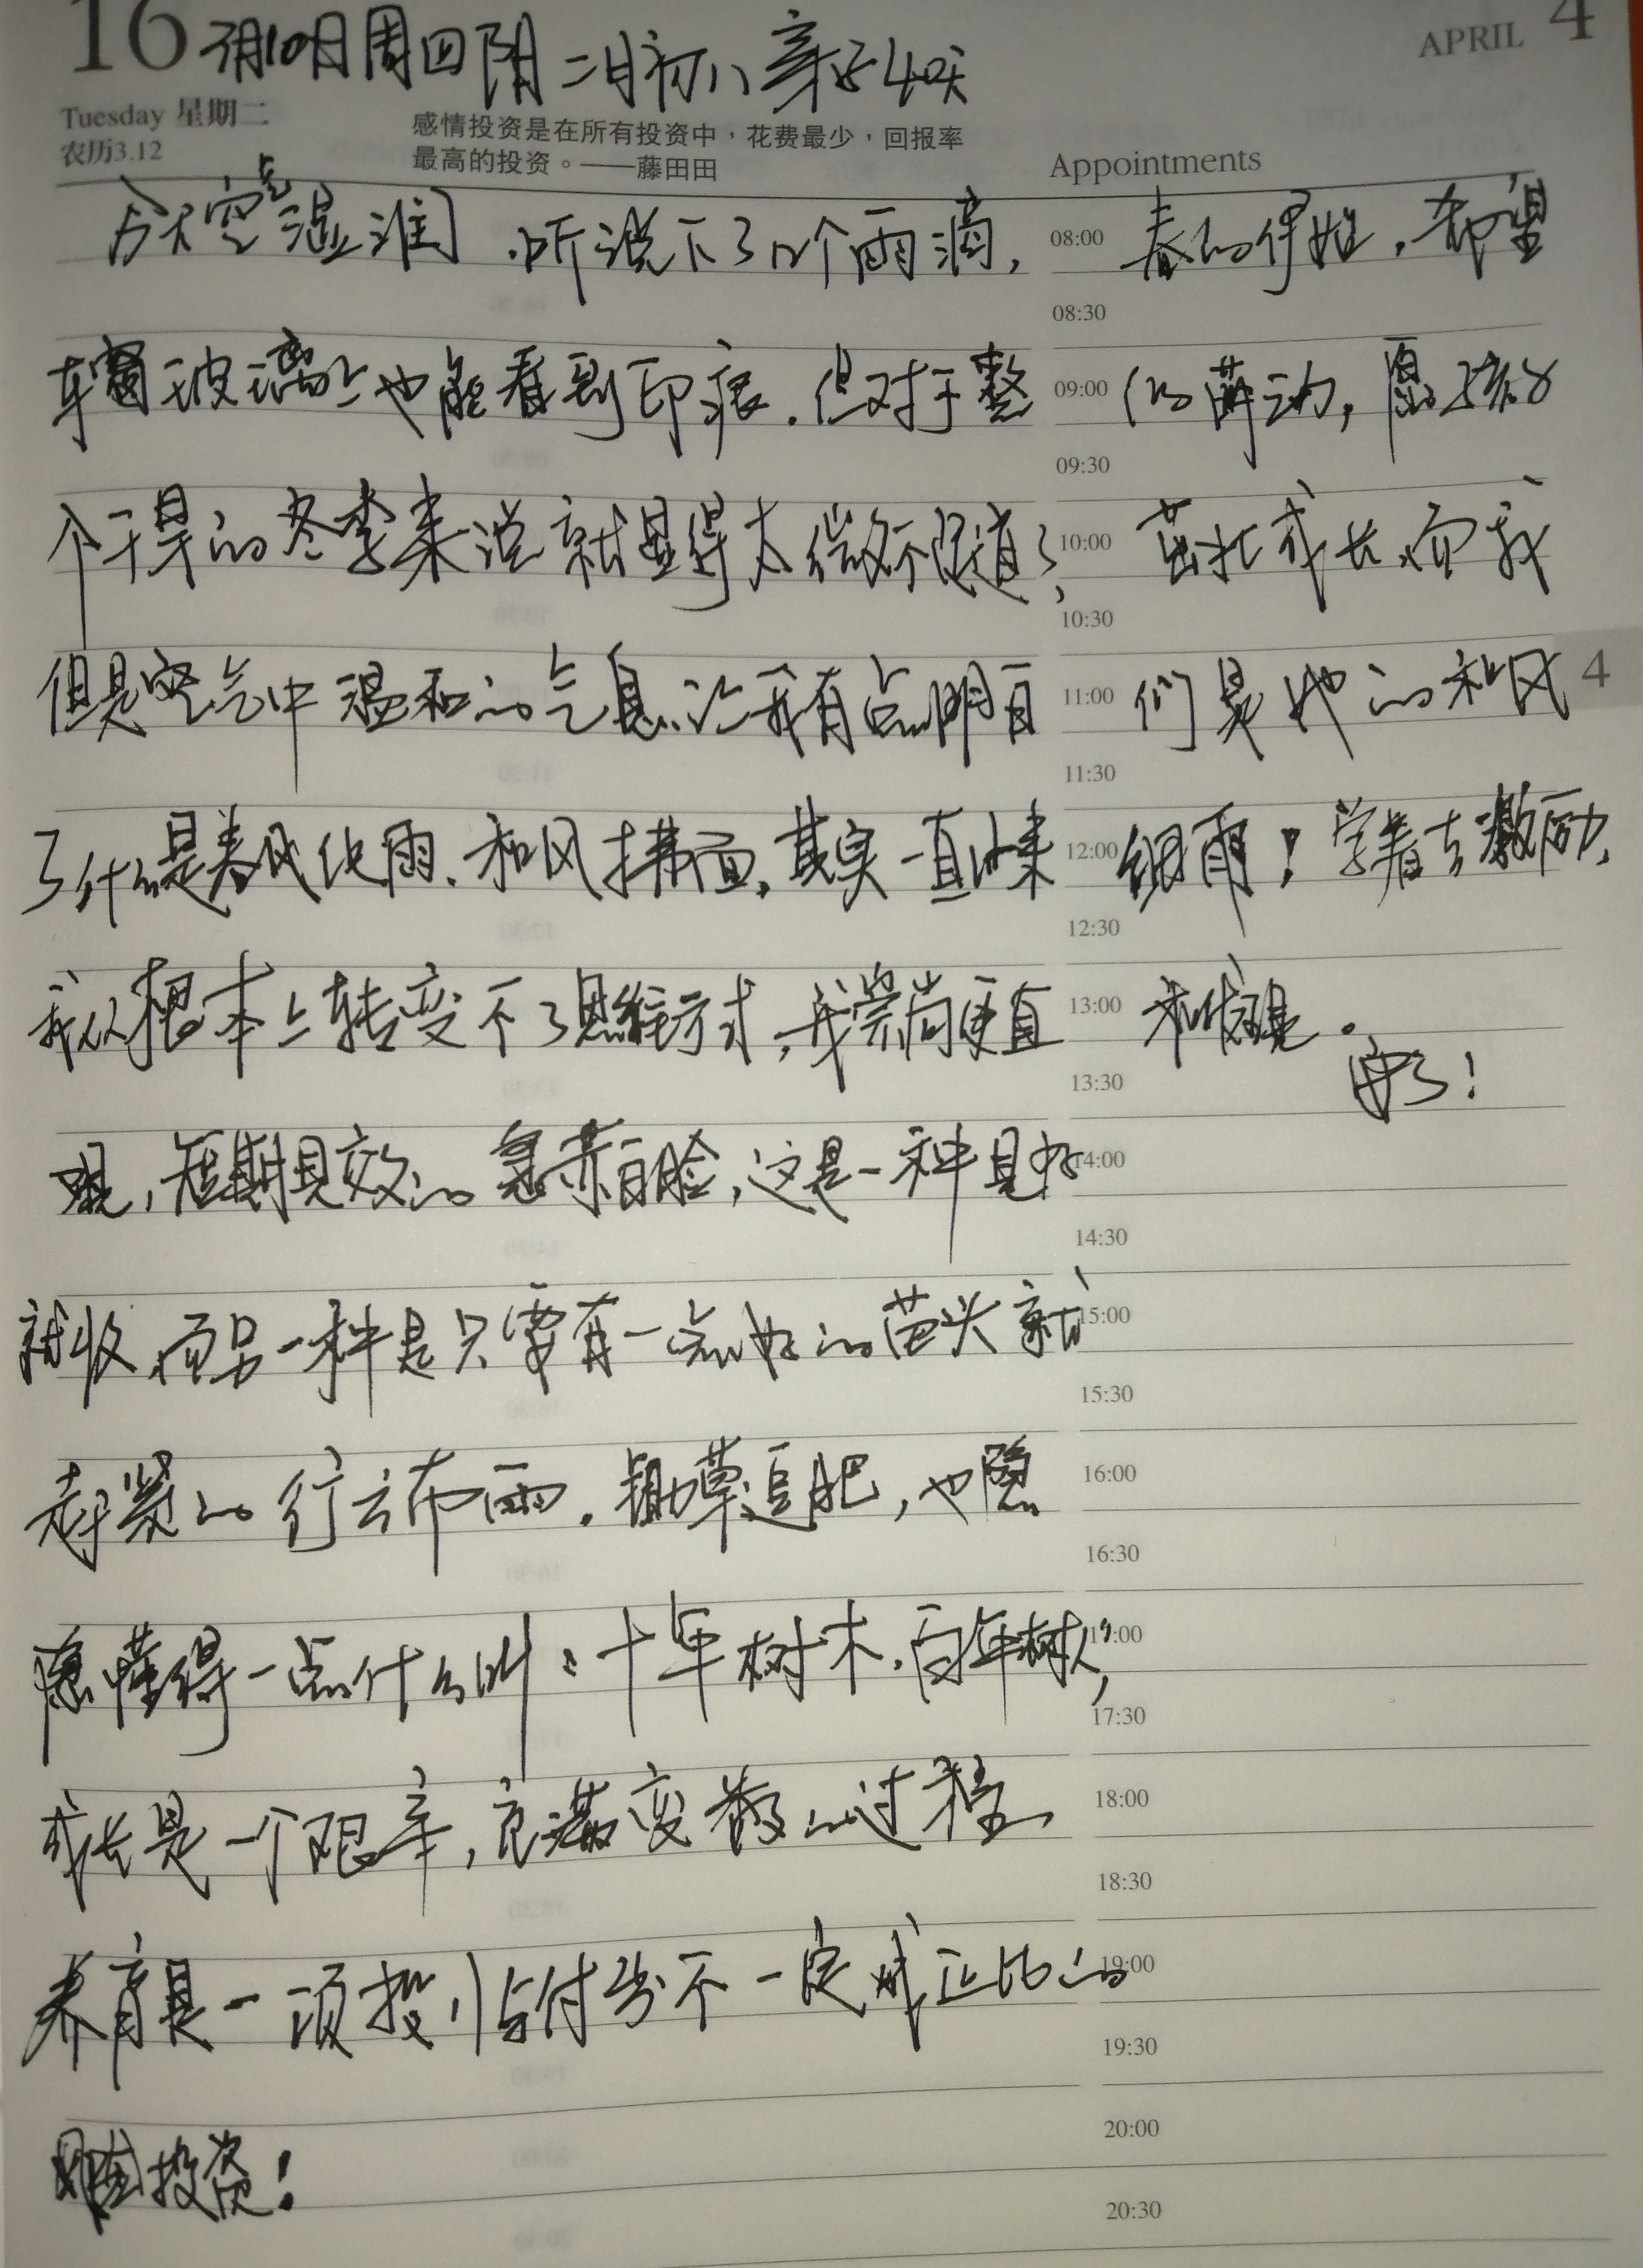 16
3月10日周四阴 二月初八 亲子40天
APRIL 4
Tuesday 星期二
农历3.12
感情投资是在所有投资中，花费最少，回报率
最高的投资。——藤田田
Appointments
今天空气湿润，听说下了几个雨滴，
车窗玻璃上也能看到印痕，但对于整
个干旱的冬季来说就显得太微不足道了，
但是空气中温和的气息，让我有点明白
了什么是春风化雨，和风拂面，其实一直以来
我从根本上转变不了思维方式，我崇尚更直
观，短期见效的急赤白脸，这是一种见好
就收，而另一种是只要有一点好的苗头就
赶紧的行云布雨，锄草追肥，也隐
隐懂得一点什么叫：十年树木，百年树人，
成长是一个艰辛，充满变数的过程，
养育是一项投入与付出不一定成正比的
投资！
08:00
08:30
09:00
09:30
10:00
10:30
11:00
11:30
12:00
12:30
13:00
13:30
14:00
14:30
15:00
15:30
16:00
16:30
17:00
17:30
18:00
18:30
19:00
19:30
20:00
20:30
春的伊始，希望
的萌动，愿孩子
茁壮成长，而我
们是他的和风
细雨！学着去激励，
和发现。
安了！
4